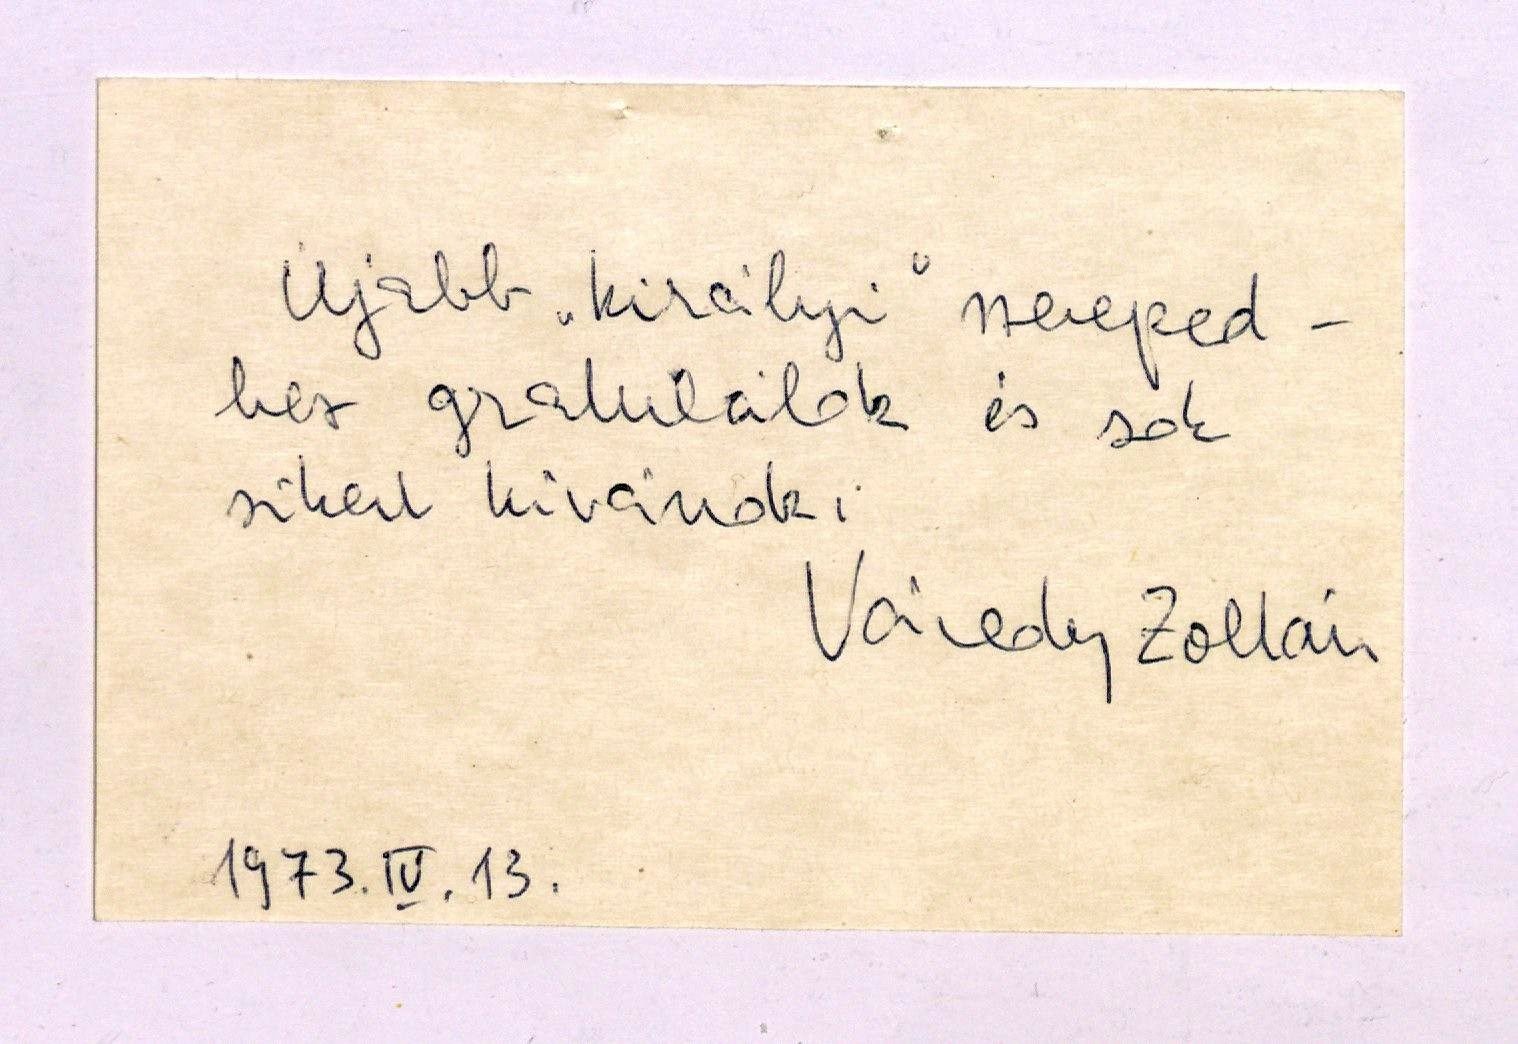 Újabb „királyi" szereped-
hez gratulálok és sok
sikert kívánok:
Várady Zoltán
1973. IV. 13.